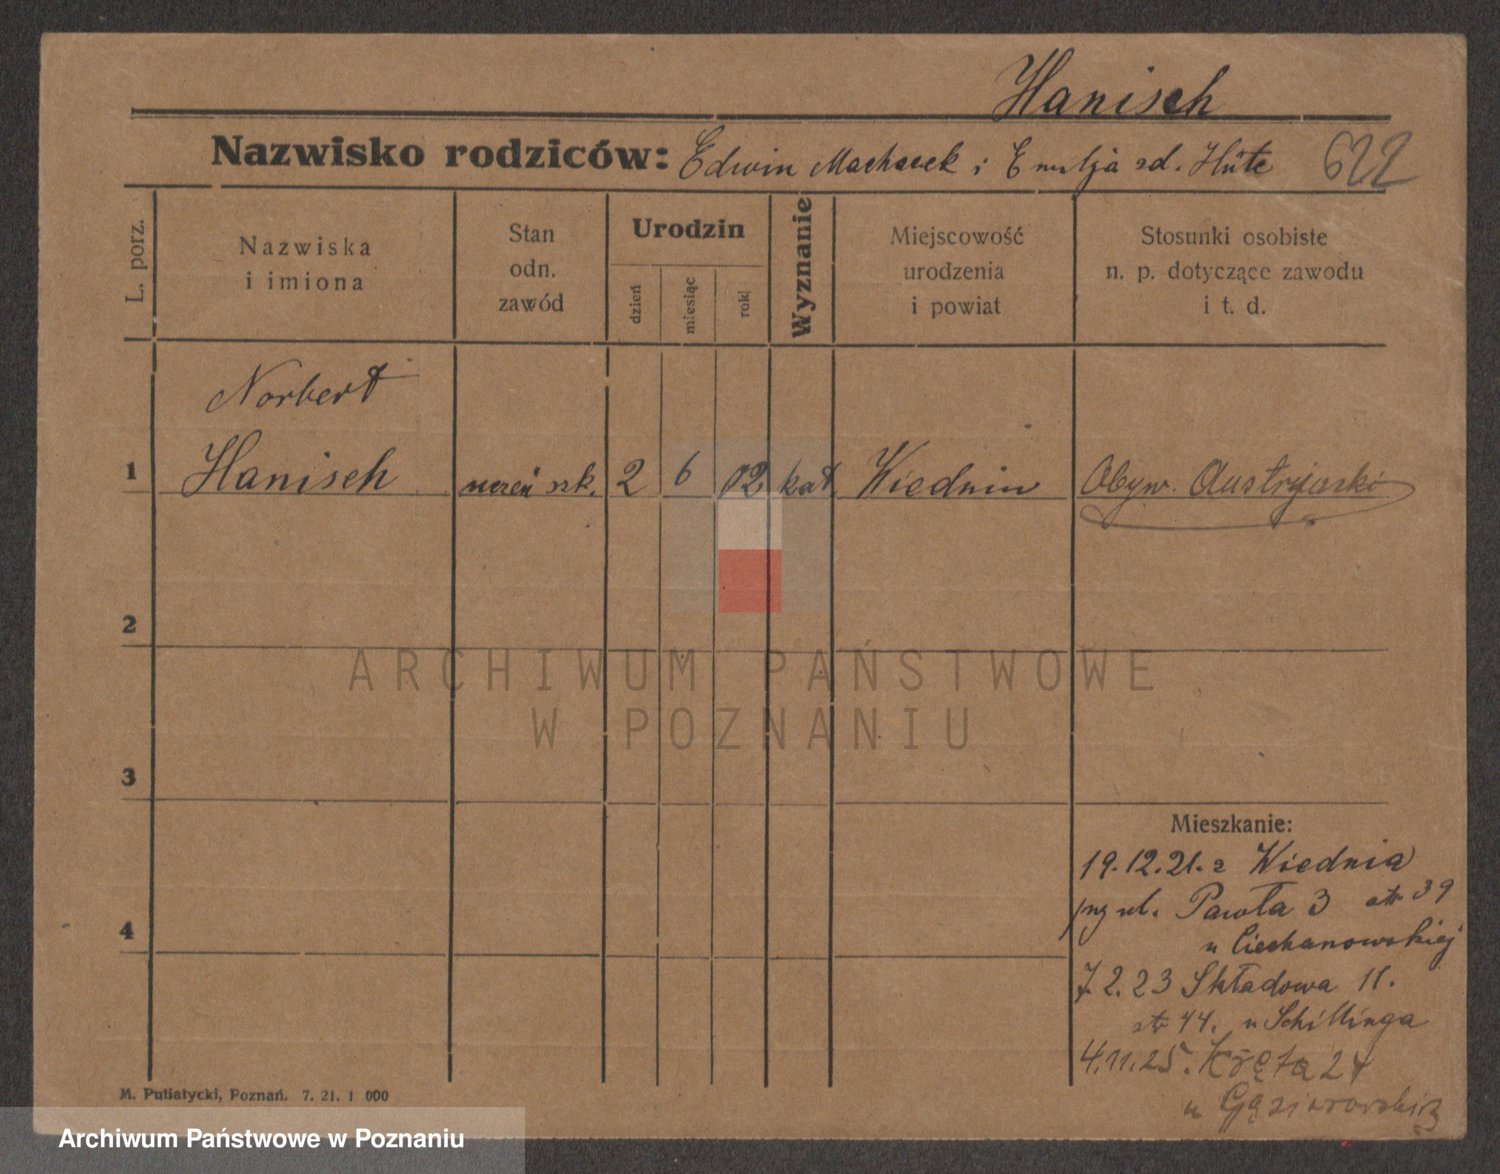 Hanisch
Nazwisko rodziców: Edwin Machacek i Emilja zd. Hüte
622
L. porz.
Nazwiska
i imiona
Stan
odn.
zawód
Urodzin
dzień
miesiąc
rok
Wyznanie
Miejscowość
urodzenia
i powiat
Stosunki osobiste
n. p. dotyczące zawodu
i t. d.
Norbert
1 Hanisch uczeń szk. 2 6 02 kat. Wiedniu Obyw. Austryjacki
2
ARCHIWUM PAŃSTWOWE
W POZNANIU
3
Mieszkanie:
19.12.21. z Wiednia
ul. Pawła 3 str 39
4
u Ciechanowskiej
7.2.23 Składowa 11.
str 44. u Schillinga
4.11.25. Kręta 24
u Gąsiorowskiej
M. Putiatycki, Poznań. 7. 21. 1 000
Archiwum Państwowe w Poznaniu